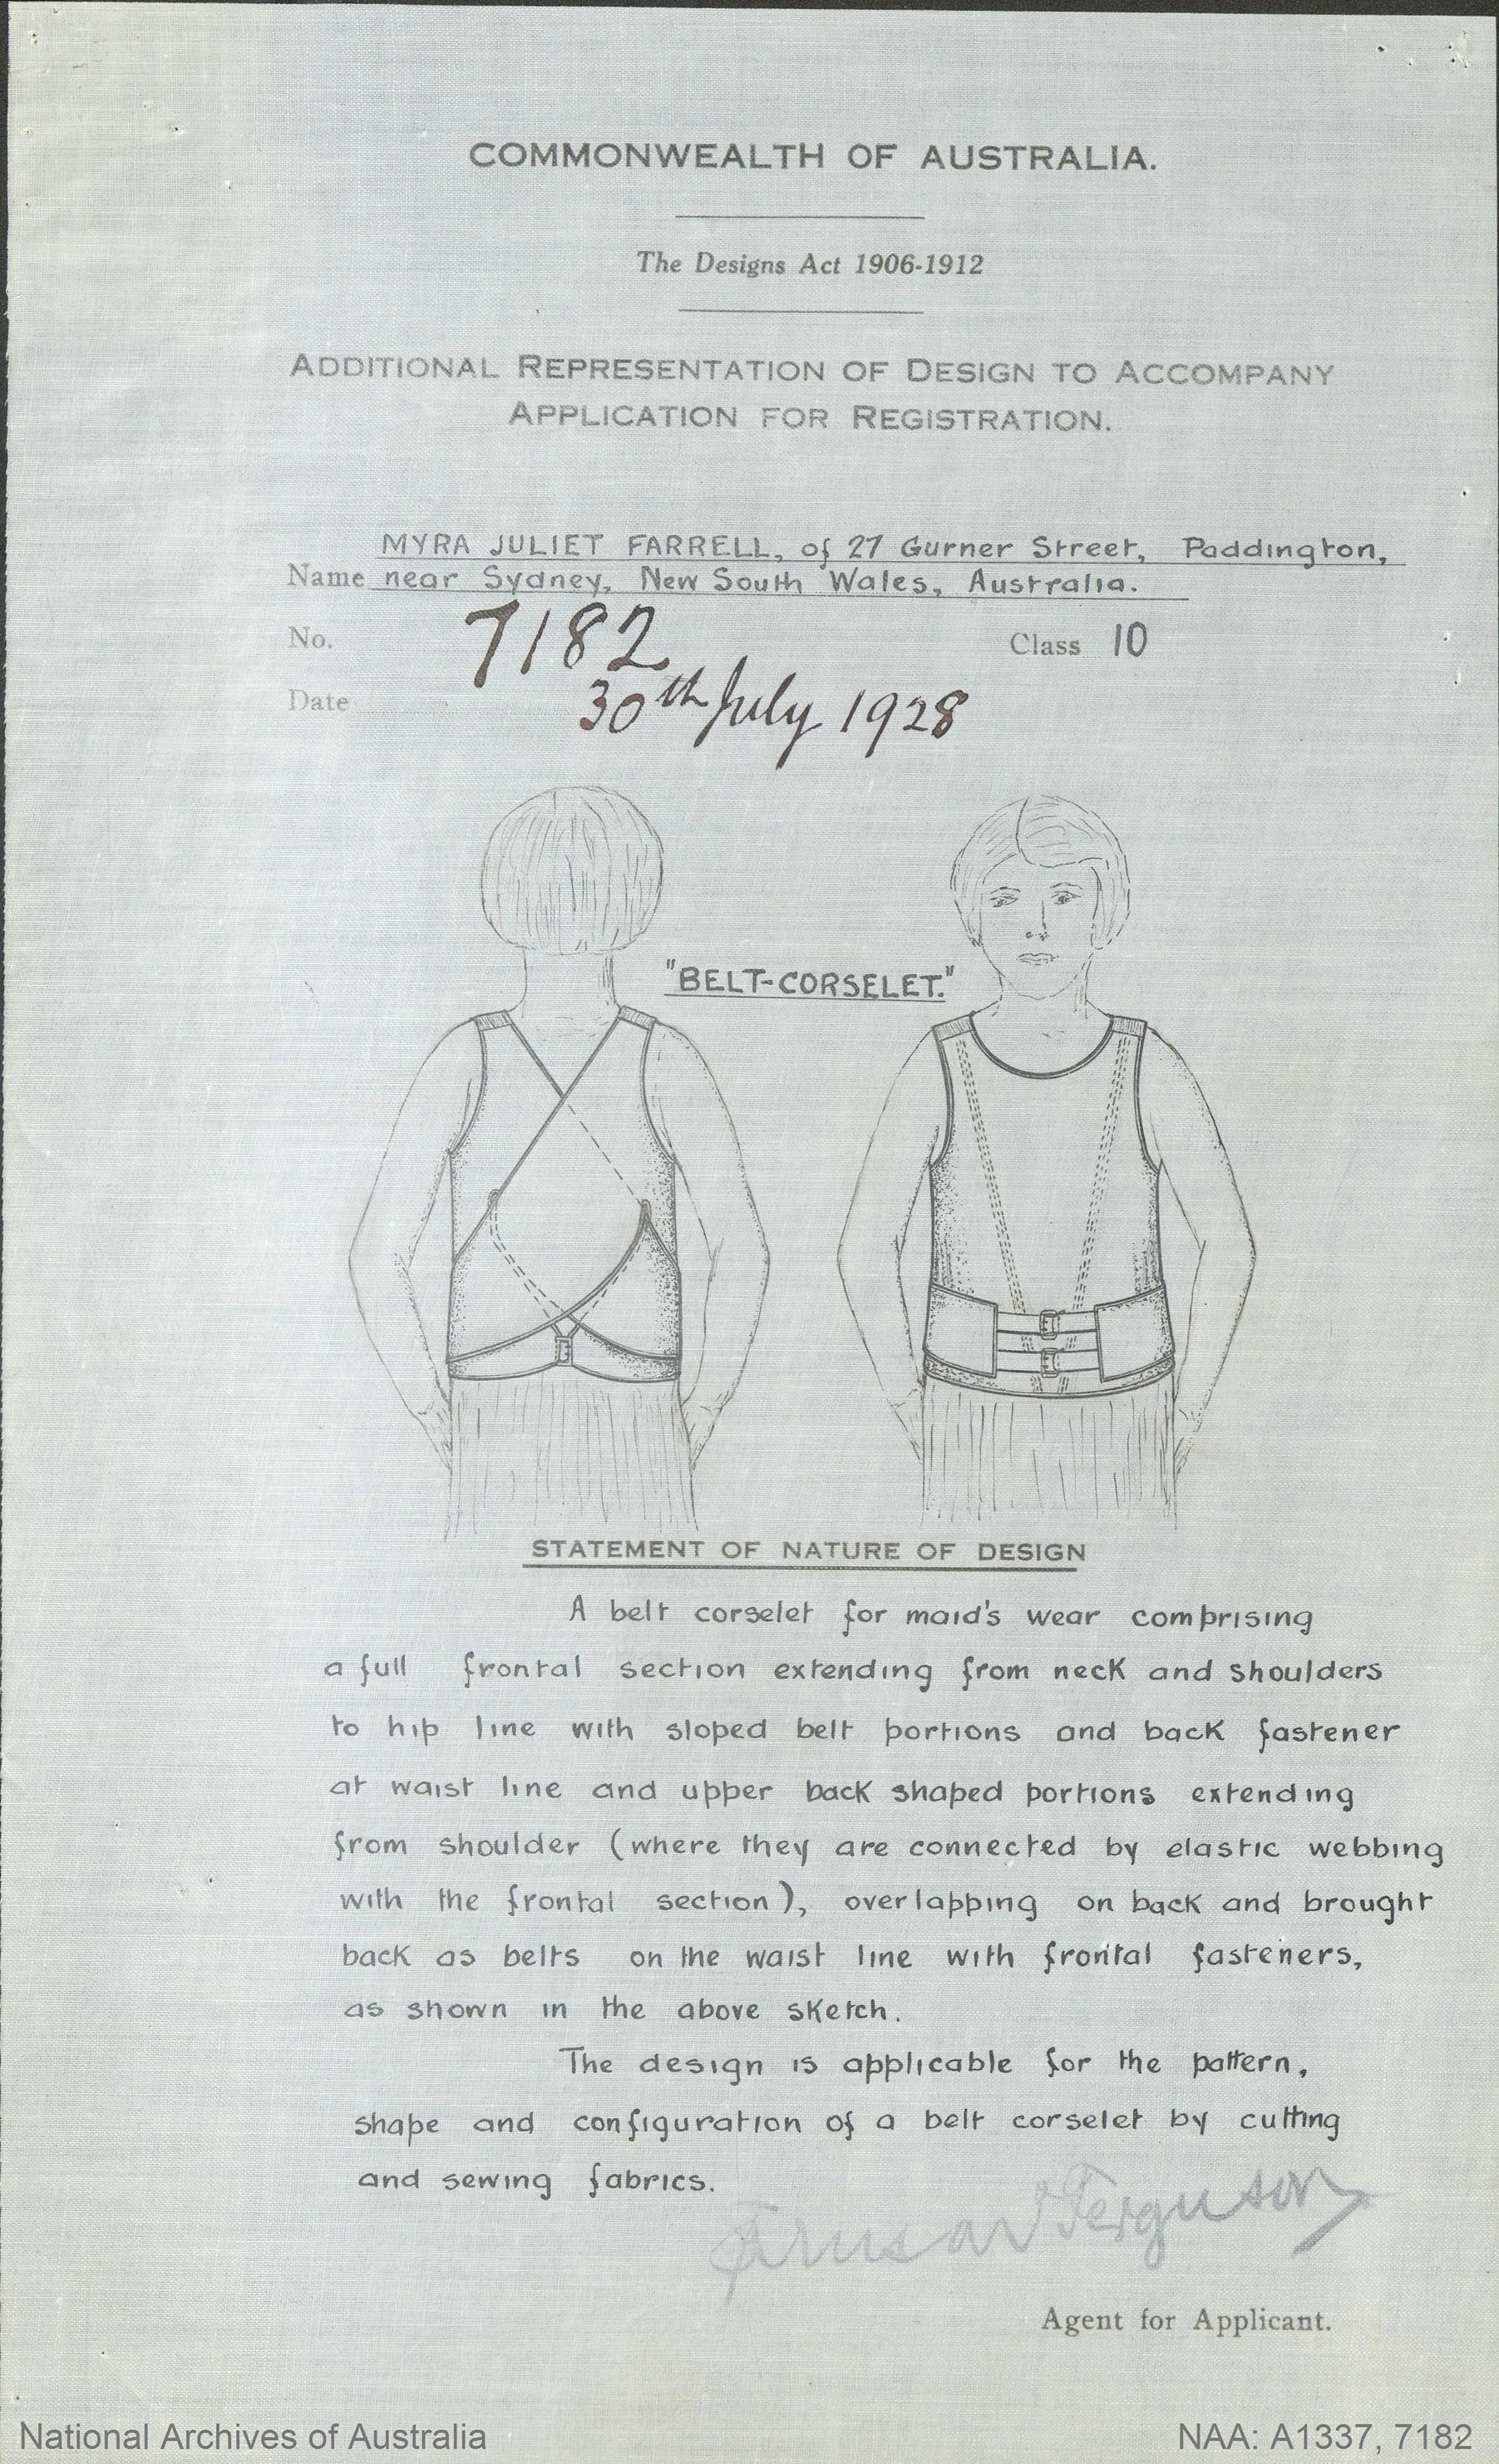 COMMONWEALTH OF AUSTRALIA.
The Designs Act 1906-1912
ADDITIONAL REPRESENTATION OF DESIGN TO ACCOMPANY
APPLICATION FOR REGISTRATION.
MYRA JULIET FARRELL, of 27 Gurner Street, Paddington,
Name near Sydney, New South Wales, Australia.
No. 7182 Class 10
Date 30th July 1928
"BELT-CORSELET."
STATEMENT OF NATURE OF DESIGN
A belt corselet for maid's wear comprising
a full frontal section extending from neck and shoulders
to hip line with sloped belt portions and back fastener
at waist line and upper back shaped portions extending
from shoulder (where they are connected by elastic webbing
with the frontal section), overlapping on back and brought
back as belts on the waist line with frontal fasteners,
as shown in the above sketch.
The design is applicable for the pattern,
shape and configuration of a belt corselet by cutting
and sewing fabrics.
Ferguson
Agent for Applicant.
National Archives of Australia
NAA: A1337, 7182